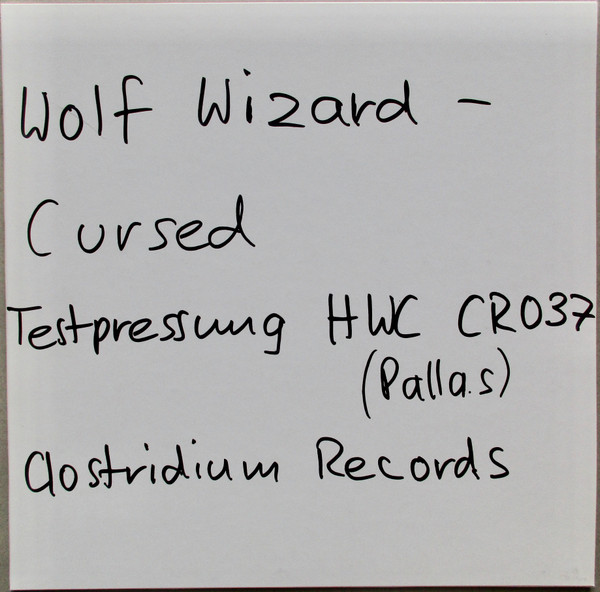 Wolf Wizard -
Cursed
Testpressung HWC CR037
(Pallas)
Clostridium Records